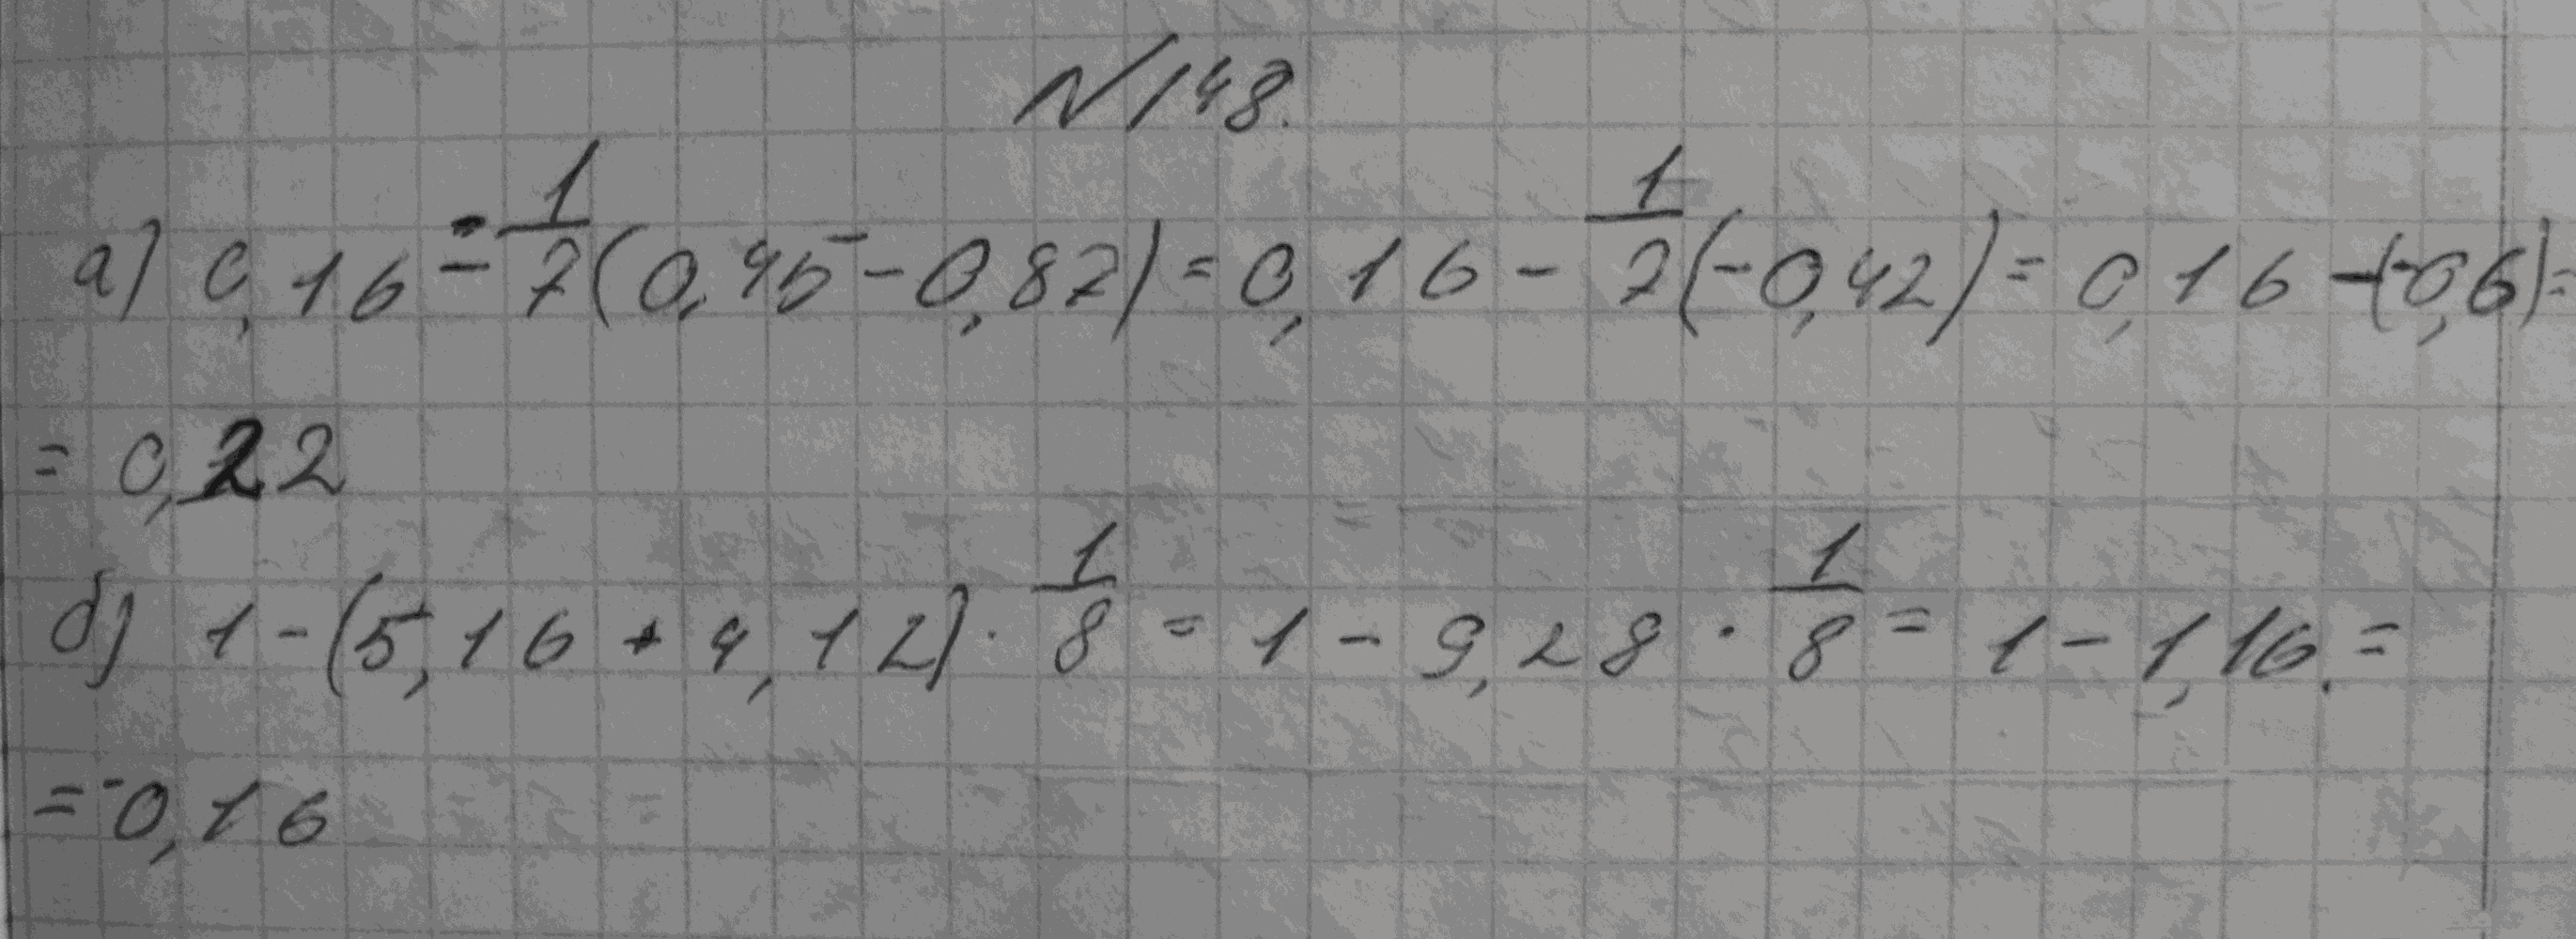 №148.
а) 0,16 - 1/7 (0,45 - 0,87) = 0,16 - 1/7 (-0,42) = 0,16 - (-0,6) =
= 0,22
б) 1 - (5,16 + 4,12) · 1/8 = 1 - 9,28 · 1/8 = 1 - 1,16. =
= -0,16